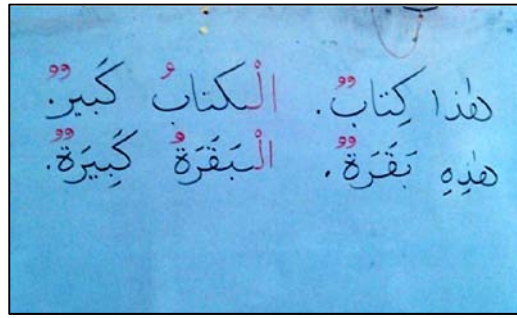 هٰذا كِتابٌ. الْكتابُ كَبيرٌ.
هٰذِهِ بَقَرَةٌ. الْبَقَرَةُ كَبِيرَةٌ.